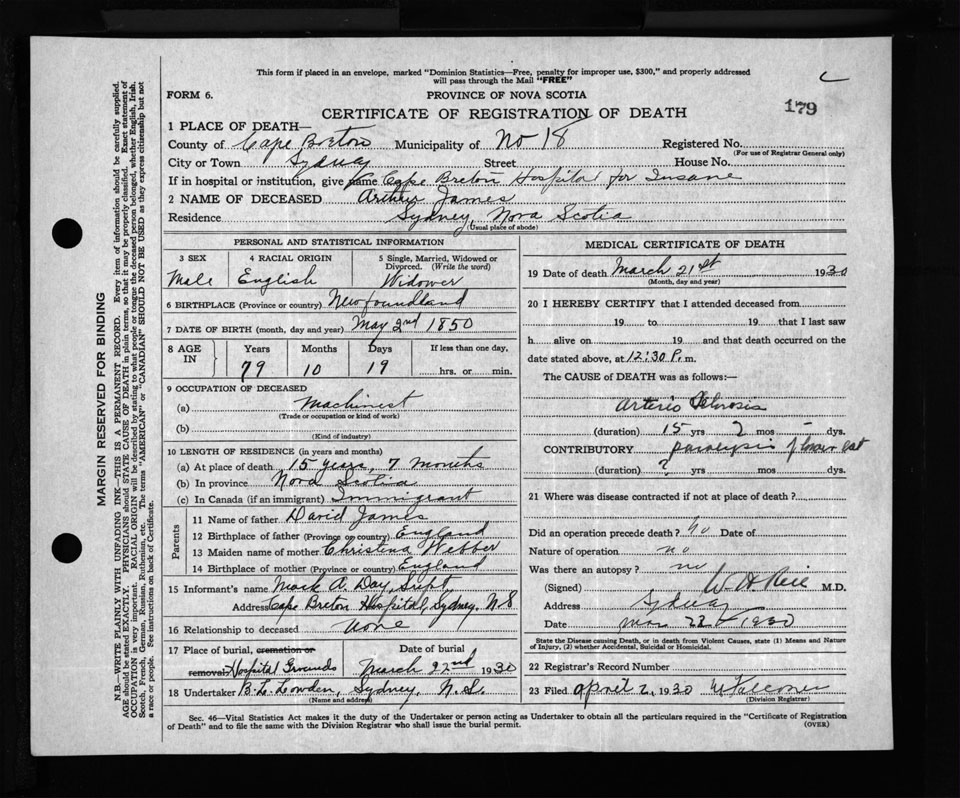 This form if placed in an envelope, marked "Dominion Statistics—Free, penalty for improper use, $300," and properly addressed
will pass through the Mail "FREE"
FORM 6.
PROVINCE OF NOVA SCOTIA
CERTIFICATE OF REGISTRATION OF DEATH
179
1 PLACE OF DEATH—
County of Cape Breton Municipality of No 18 Registered No.
(For use of Registrar General only)
City or Town Sydney Street House No.
If in hospital or institution, give name Cape Breton Hospital for Insane
2 NAME OF DECEASED Arthur James
Residence Sydney, Nova Scotia
(Usual place of abode)
PERSONAL AND STATISTICAL INFORMATION
3 SEX 4 RACIAL ORIGIN 5 Single, Married, Widowed or
Divorced. (Write the word)
Male English Widower
6 BIRTHPLACE (Province or country) Newfoundland
7 DATE OF BIRTH (month, day and year) May 2nd 1850
8 AGE IN Years Months Days If less than one day,
79 10 19 hrs. or min.
9 OCCUPATION OF DECEASED
(a) Machinest
(Trade or occupation or kind of work)
(b)
(Kind of industry)
10 LENGTH OF RESIDENCE (in years and months)
(a) At place of death 15 years, 7 months
(b) In province Nova Scotia
(c) In Canada (if an immigrant) Immigrant
Parents
11 Name of father David James
12 Birthplace of father (Province or country) England
13 Maiden name of mother Christina Webber
14 Birthplace of mother (Province or country) England
15 Informant's name Mack A. Day, Supt
Address Cape Breton Hospital, Sydney, N S
16 Relationship to deceased None
17 Place of burial, cremation or removal Hospital Grounds
Date of burial
March 22nd 1930
18 Undertaker B. L. Lowden, Sydney, N.S.
(Name and address)
MEDICAL CERTIFICATE OF DEATH
19 Date of death March 21st 1930
(Month, day and year)
20 I HEREBY CERTIFY that I attended deceased from
19 to 19 that I last saw
h alive on 19 and that death occurred on the
date stated above, at 12:30 P.m.
The CAUSE of DEATH was as follows:—
Arterio Sclerosis
(duration) 15 yrs 2 mos - dys.
CONTRIBUTORY paralysis of
(duration) ? yrs mos dys.
21 Where was disease contracted if not at place of death?
Did an operation precede death? No Date of
Nature of operation no
Was there an autopsy? no
(Signed) M.D.
Address Sydney
Date Mar 22 1930
State the Disease causing Death, or in death from Violent Causes, state (1) Means and Nature
of Injury, (2) whether Accidental, Suicidal or Homicidal.
22 Registrar's Record Number
23 Filed April 2, 1930
(Division Registrar)
Sec. 46—Vital Statistics Act makes it the duty of the Undertaker or person acting as Undertaker to obtain all the particulars required in the "Certificate of Registration
of Death" and to file the same with the Division Registrar who shall issue the burial permit.
(OVER)
MARGIN RESERVED FOR BINDING
N.B.—WRITE PLAINLY WITH UNFADING INK—THIS IS A PERMANENT RECORD. Every item of information should be carefully supplied.
AGE should be stated EXACTLY. PHYSICIANS should STATE CAUSE OF DEATH in plain terms, so that it may be properly classified. Exact statement of
OCCUPATION is very important. RACIAL ORIGIN will be described by stating to what people or tongue the deceased person belonged, whether English, Irish,
Scotch, French, German, Russian, Ruthenian, etc. The terms "AMERICAN" or "CANADIAN" SHOULD NOT BE USED as they express citizenship but not
a race or people. See instructions on back of Certificate.